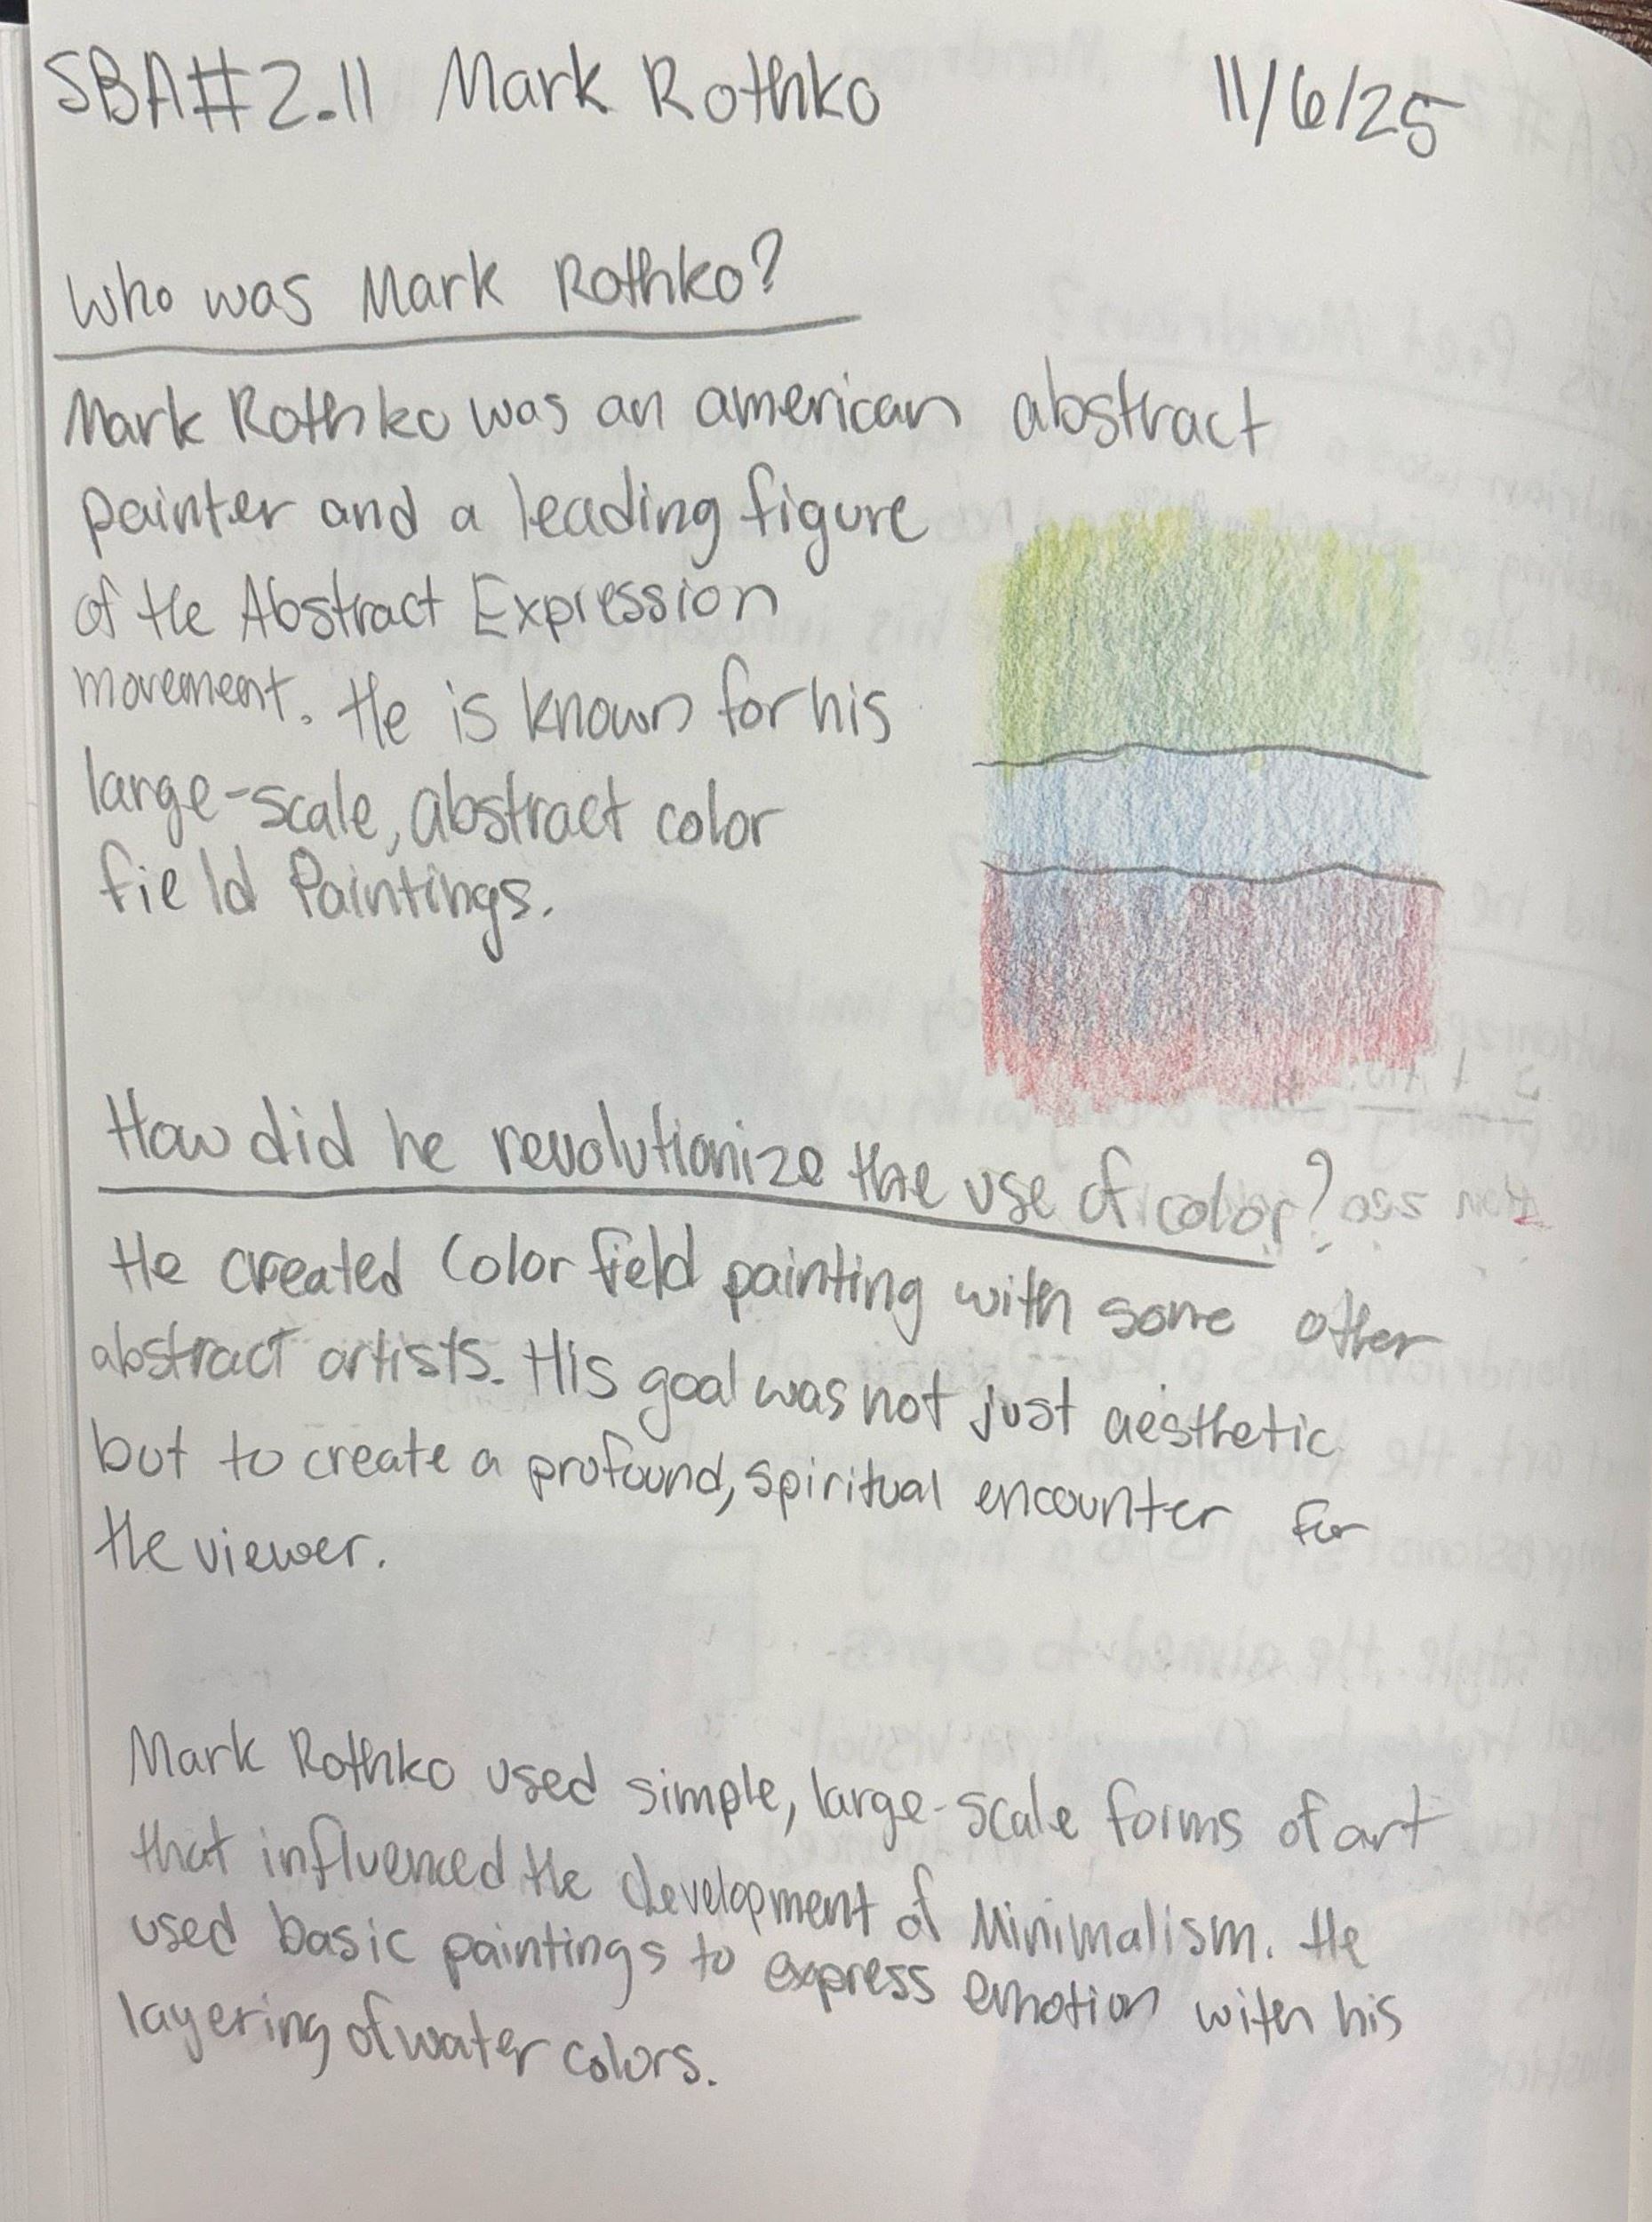 SBA#2.11 Mark Rothko 11/6/25
Who was Mark Rothko?
Mark Rothko was an american abstract
painter and a leading figure
of the Abstract Expression
movement. He is known for his
large-scale, abstract color
field Paintings.
How did he revolutionize the use of color?
He created Color field painting with some other
abstract artists. His goal was not just aesthetic
but to create a profound, spiritual encounter for
the viewer.
Mark Rothko used simple, large-scale forms of art
that influenced the development of Minimalism. He
used basic paintings to express emotion with his
layering of water colors.